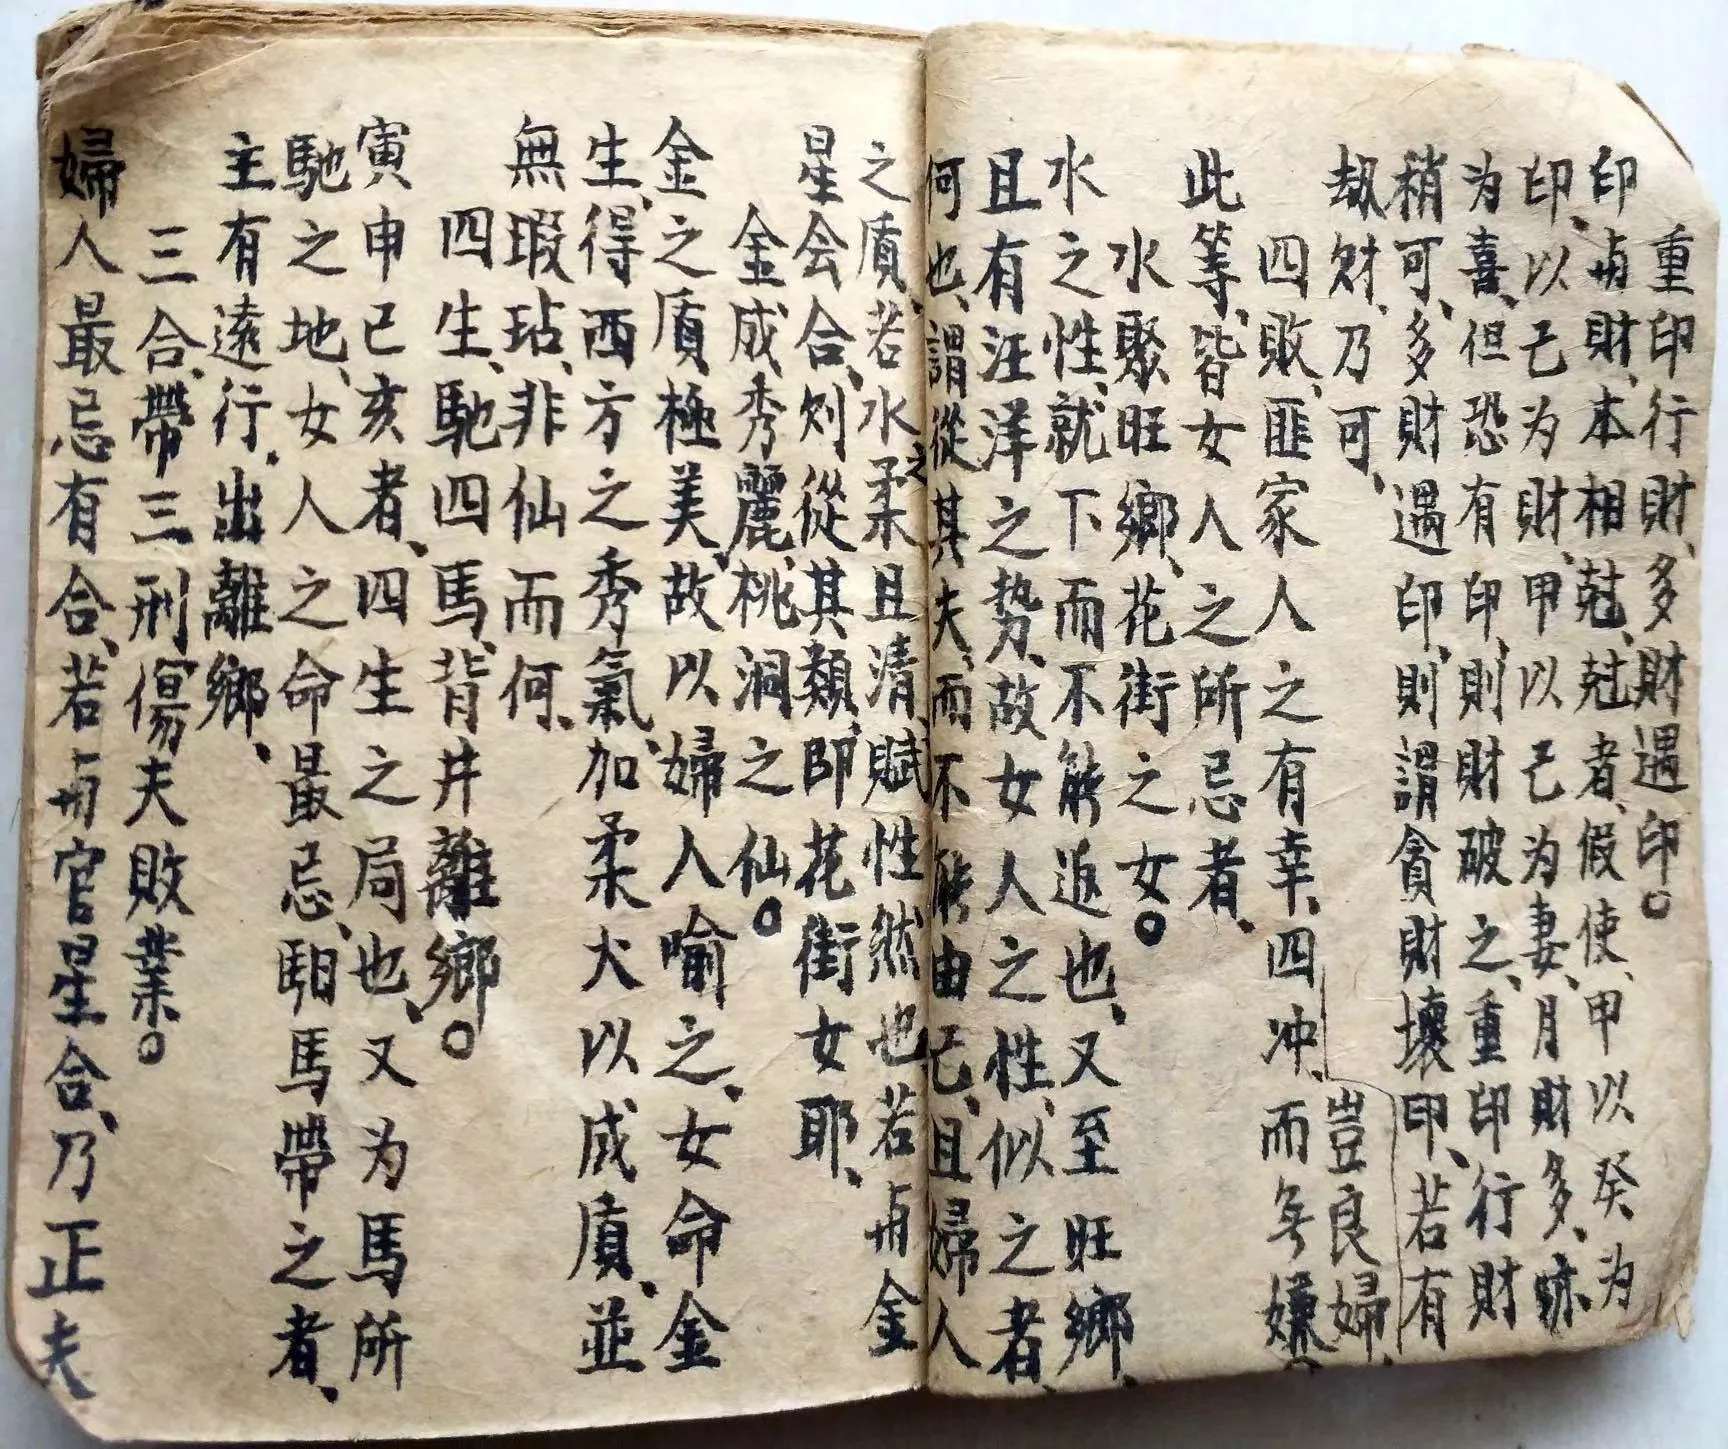 重印行財、多財遇印。
印、與財、本相尅、尅者、假使、甲以癸为
印、以己为財、甲以己为妻、月財多、
为喜、但恐有印、則財破之、重印行財
稍可、多財遇印、則謂貪財壞印、若有
劫財、乃可、
四敗、匪家人之有幸、四冲、而無嫌、豈良婦、
此等、皆女人之所忌者、
水聚旺鄉、花街之女。
水之性、就下而不能返也、又至旺鄉、
且有汪洋之势、故女人之性、似之者、
何也、謂從其夫、而不能由己、且婦人
之質、若水之柔且清、賦性然也若與金
星会合、則從其類、即花街女耶、
金成秀麗、桃洞之仙。
金之質、極美、故以婦人喻之、女命金
生、得西方之秀氣、加柔火以成質、並
無瑕玷、非仙而何、
四生、馳四馬、背井離鄉。
寅申巳亥者、四生之局也、又为馬所
馳之地、女人之命最忌、馹馬帶之者、
主有遠行、出離鄉、
三合、帶三刑傷夫敗業。
婦人最忌有合、若與官星合、乃正夫